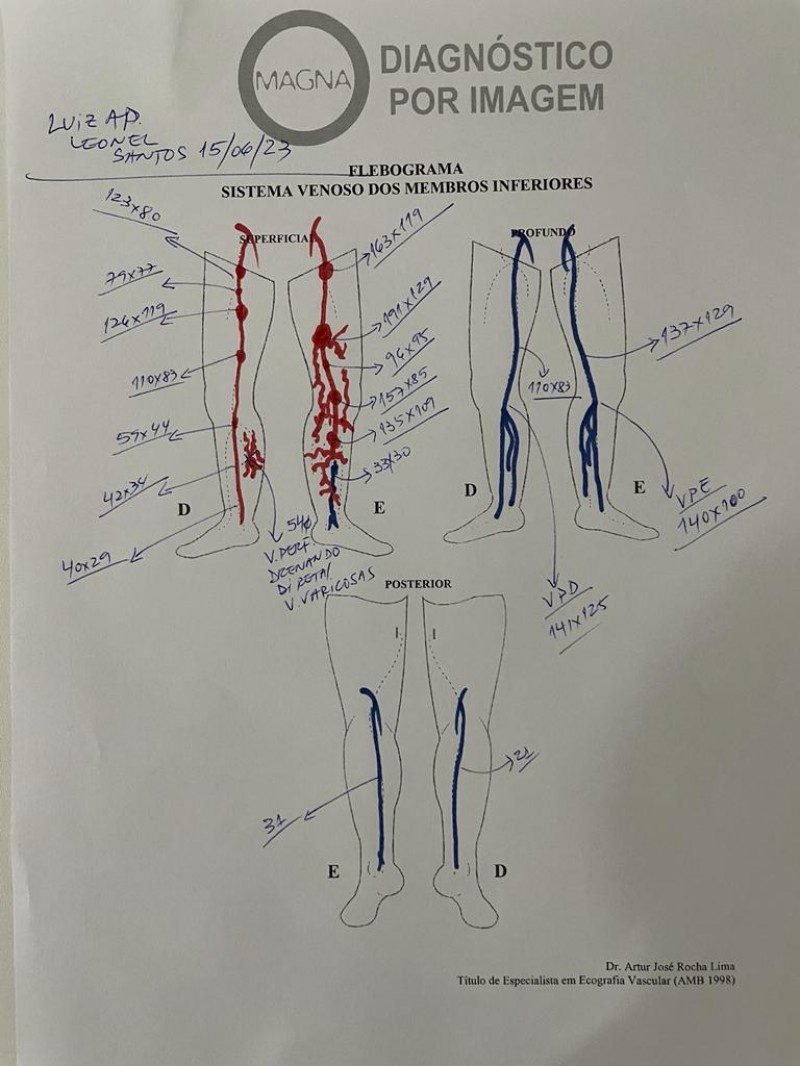 MAGNA
DIAGNÓSTICO
POR IMAGEM
LUIZ AP.
LEONEL
SANTOS 15/06/23
FLEBOGRAMA
SISTEMA VENOSO DOS MEMBROS INFERIORES
SUPERFICIAL
PROFUNDO
123x80
79x77
126x119
110x83
59x44
42x34
40x29
D
163x119
191x129
94x95
157x85
135x109
33x30
E
54¢
V. PERF.
DRENANDO
DIRETA/
V. VARICOSAS
110x83
137x129
D
E
VPE
140x100
VPD
141x125
POSTERIOR
31
21
E
D
Dr. Artur José Rocha Lima
Título de Especialista em Ecografia Vascular (AMB 1998)